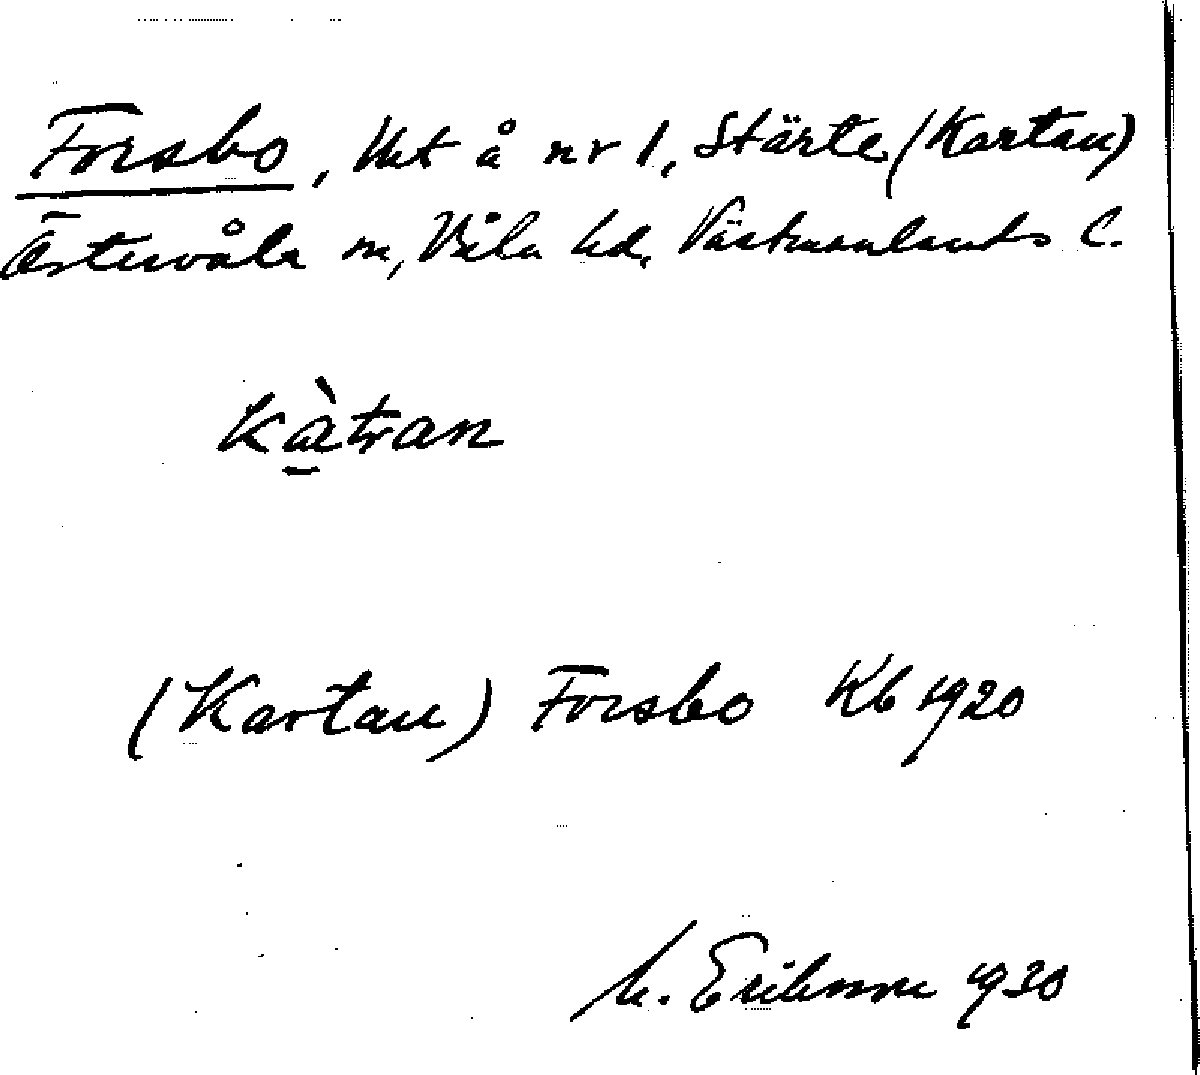 Forsbo, Hst å nr 1, Stärte (Kartan)
Östervåla sn, Våla hd, Västmanlands l.
kàtran
(Kartan) Forsbo Kb 1920
M. Eriksson 1930